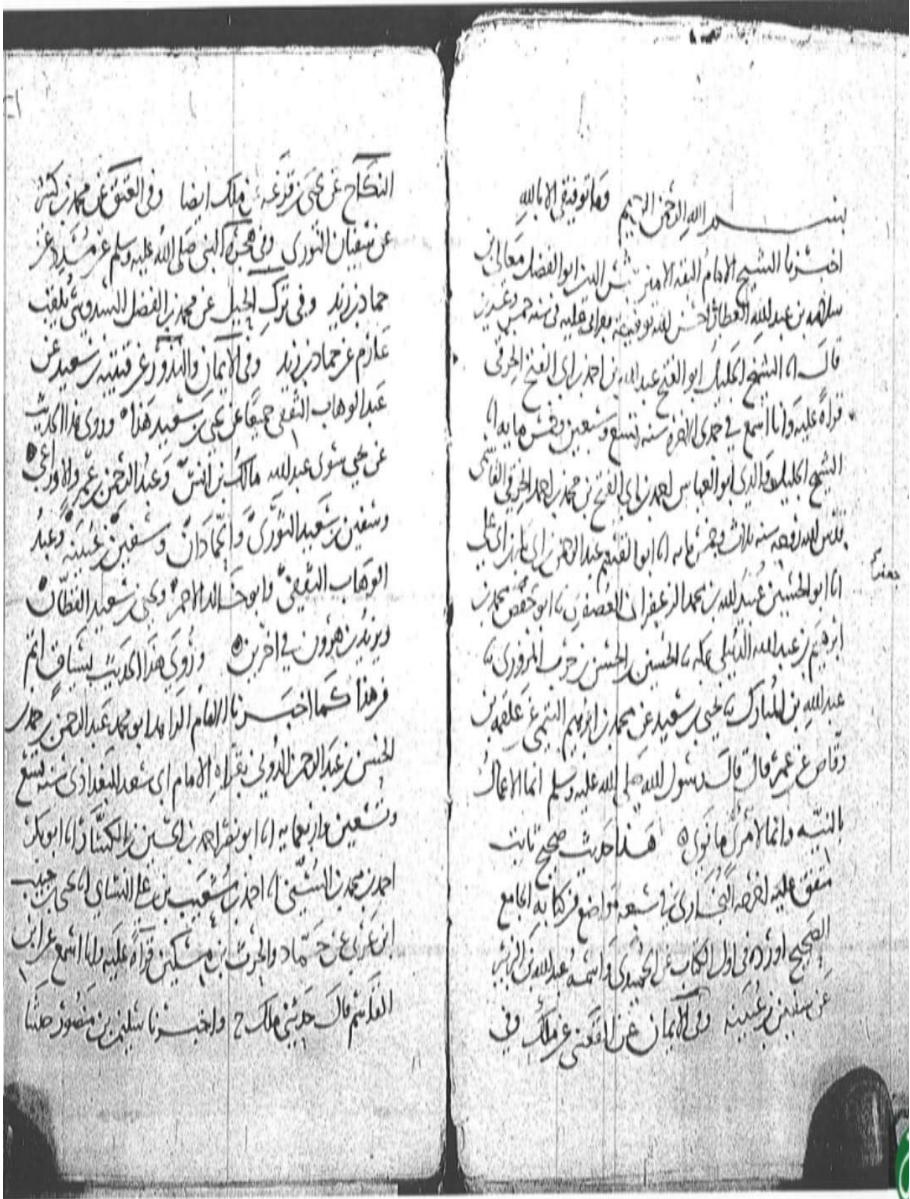 بسم الله الرحمن الرحيم وما توفيقي الا بالله
اخبرنا الشيخ الامام الثقة الامين شمس الدين ابو الفضل معالي بن
سلامه بن عبد الله العطار احسن الله توفيقه بقراتي عليه في سنه خمس وعشرين
قال انا الشيخ الجليل ابو الفتح عبد الله بن احمد بن ابي الفتح الخرقي
قراة عليه وانا اسمع في جمدى الاخره سنه تسع وسبعين وخمس مايه انا
الشيخ الجليل والدي ابو العباس احمد بن ابي الفتح بن محمد بن احمد الخرقي القاسمي
قدس الله روحه سنه ثلاث وخمس مايه انا ابو القسم عبد الرحمن بن ابي بكر بن ابي علي
انا ابو الحسين عبيد الله بن محمد الزعفراني ابو حفص محمد بن
ابرهيم بن عبد الله الدبيلي بمكه نا الحسين بن الحسن بن حرب المروزي نا
عبد الله بن المبارك نا يحيى بن سعيد عن محمد بن ابرهيم التيمي عن علقمه بن
وقاص عن عمر قال قال رسول الله صلى الله عليه وسلم انما الاعمال
بالنيه وانما لامرئ ما نوى هذا حديث صحيح ثابت
متفق عليه اخرجه البخاري في سبعه مواضع في كتابه الجامع
الصحيح اورده في اول الكتاب عن الحميدي واسمه عبد الله بن الزبير
عن سفين بن عيينه وفي الايمان عن القعنبي عن ملك وفي
النكاح عن يحيى بن قزعه عن ملك ايضا وفي العتق عن محمد بن كثير
عن سفيان الثوري وفي هجرة النبي صلى الله عليه وسلم عن مسدد عن
حماد بن زيد وفي ترك الحيل عن محمد بن الفضل السدوسي يلقب
عارم عن حماد بن زيد وفي الايمان والنذور عن قتيبه بن سعيد عن
عبد الوهاب الثقفي جميعا عن يحيى بن سعيد هذا وروى هذا الحديث
عن يحيى سوى عبد الله مالك بن انس وعبد الرحمن بن عمرو الاوزاعي
وسفين بن سعيد الثوري والحمادان وسفين بن عيينه وعبد
الوهاب الثقفي وابو خالد الاحمر ويحيى بن سعيد القطان
ويزيد بن هرون في اخرين وروي هذا الحديث بسياق اتم
من هذا كما اخبرنا الامام الزاهد ابو محمد عبد الرحمن بن حمد بن
الحسن بن عبد الرحمن الدوني بقراه الامام ابي سعد البغدادي سنه تسع
وتسعين واربعمايه انا ابو نصر احمد بن الحسين بن الكسار انا ابو بكر
احمد بن محمد بن السني انا احمد بن شعيب بن علي النسائي انا يحيى بن حبيب
ابن عربي عن حماد والحرث بن مسكين قراة عليه وانا اسمع عن ابن
القاسم قال حدثني ملك ح واخبرنا سليمن بن منصور حدثنا